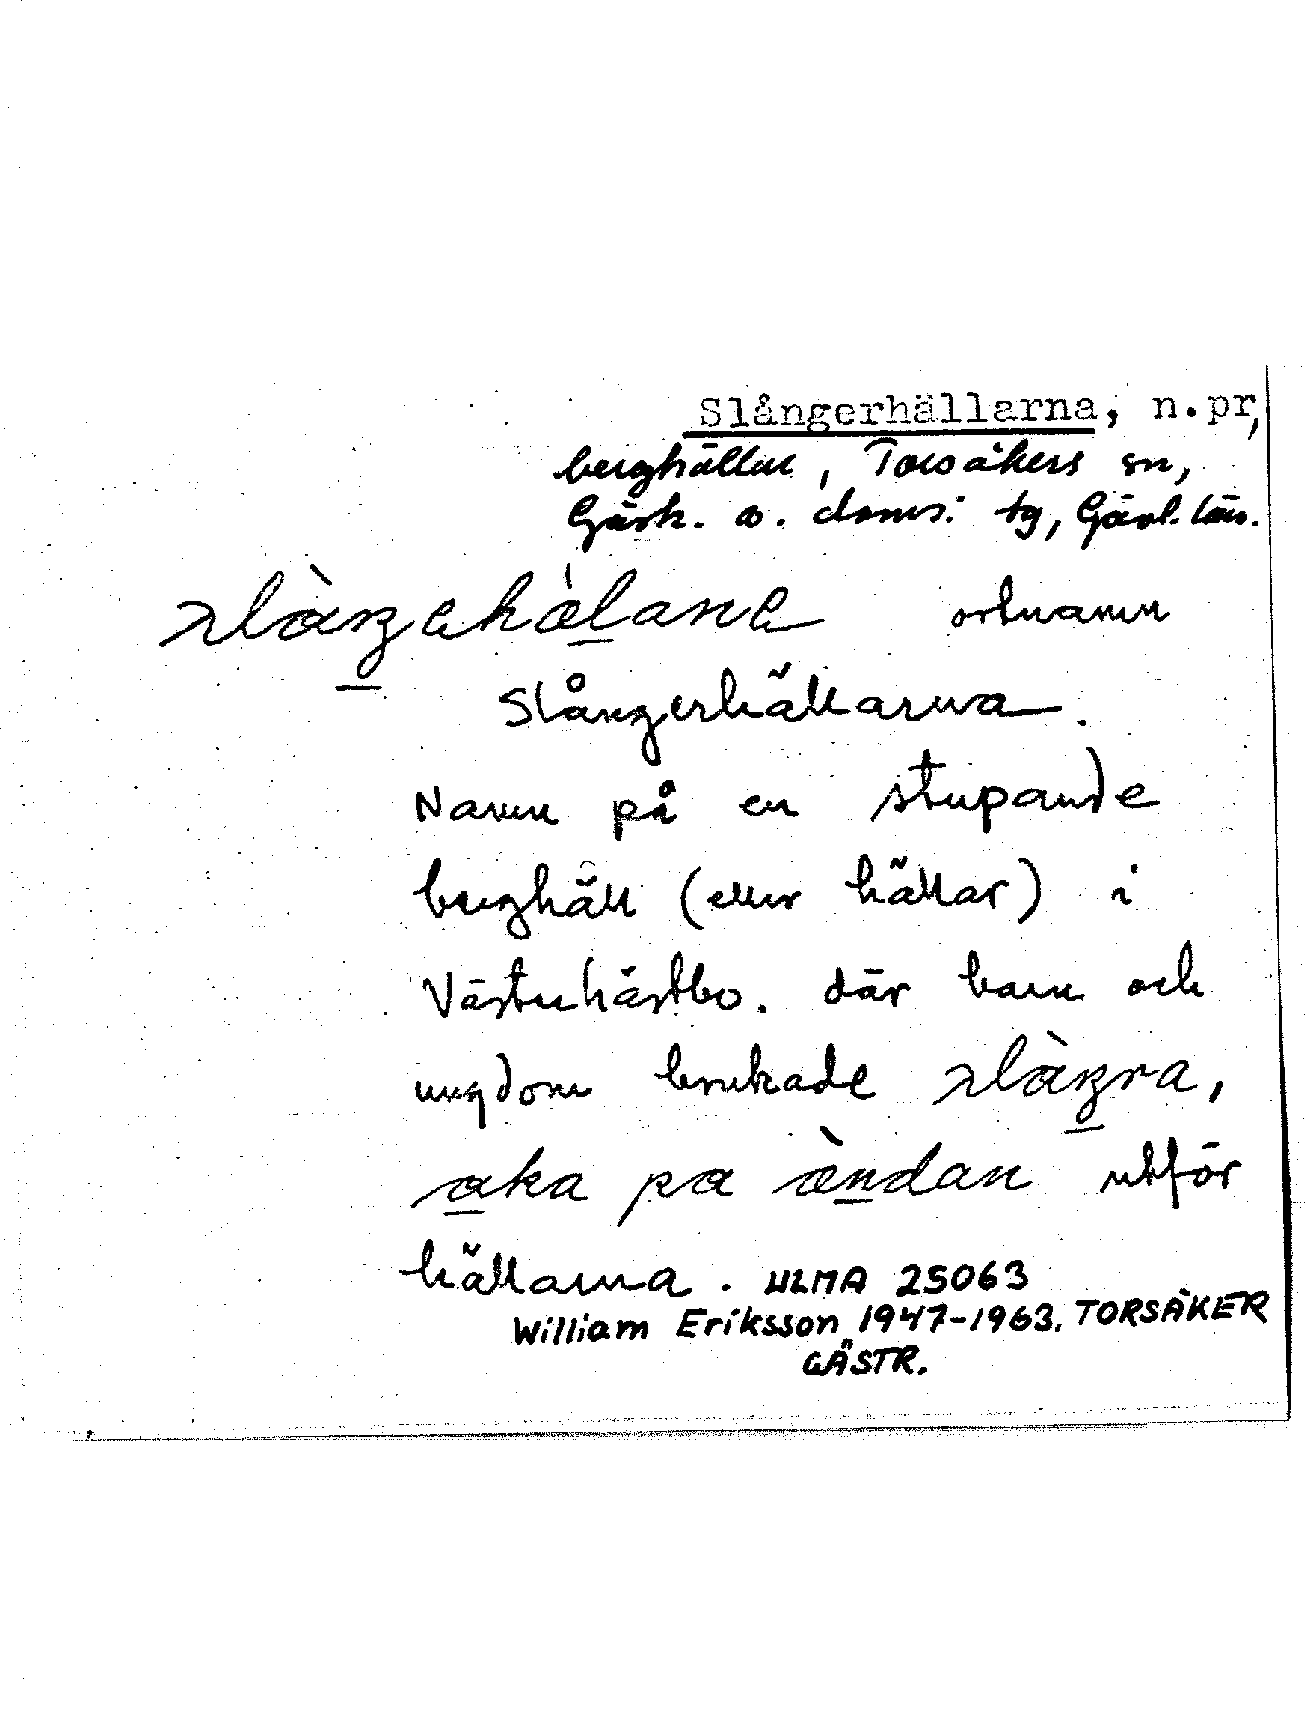 Slångerhällarna, n.pr,
berghällar, Torsåkers sn,
Gästr. ö. doms. tg, Gävl. län.
slàŋǝhälanǝ ortnamn
Slångerhällarna.
Namn på en stupande
berghäll (eller hällar) i
Västerhästbo. där barn och
ungdom brukade slàŋra,
aka pa ändan utför
hällarna. ULMA 25063
William Eriksson 1947-1963. TORSÅKER
GÄSTR.